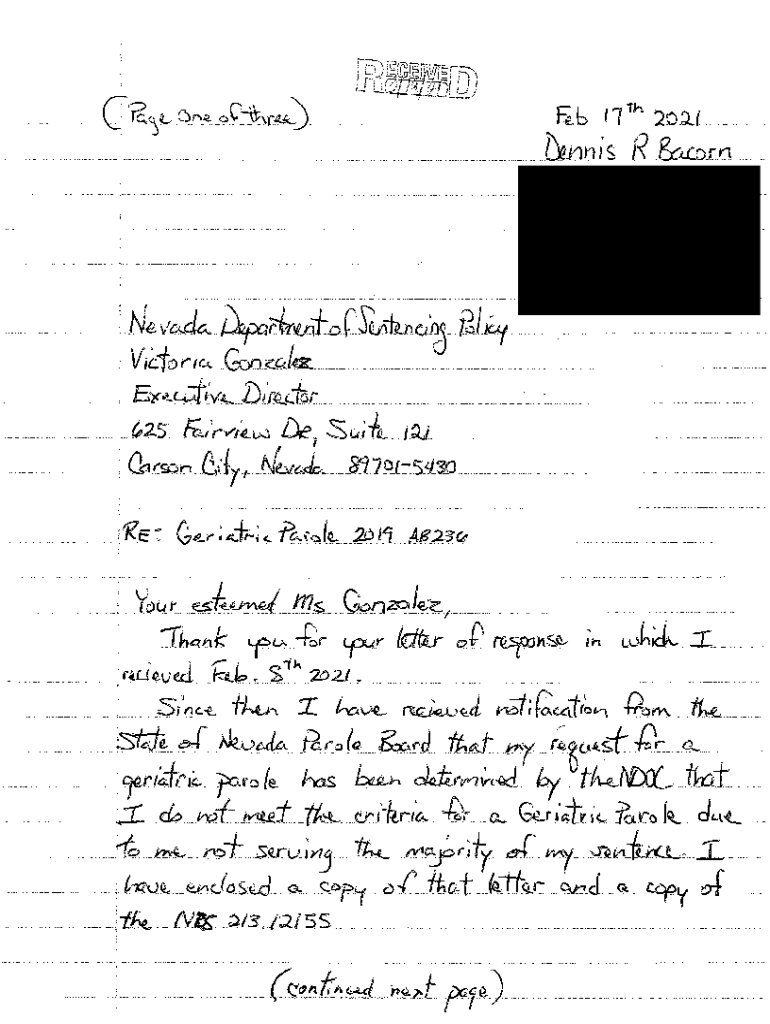 RECEIVED
(Page one of three)
Feb 17th 2021
Dennis R Bacorn
Nevada Department of Sentencing Policy
Victoria Gonzalez
Executive Director
625 Fairview DR, Suite 121
Carson City, Nevada 89701-5430
RE: Geriatric Parole 2019 AB236
Your esteemed Ms Gonzalez,
Thank you for your letter of response in which I
recieved Feb. 8th 2021.
Since then I have recieved notifacation from the
State of Nevada Parole Board that my request for a
geriatric parole has been determined by the NDOC that
I do not meet the criteria for a Geriatric Parole due
to me not serving the majority of my sentence. I
have enclosed a copy of that letter and a copy of
the NRS 213.12155
(continued next page)